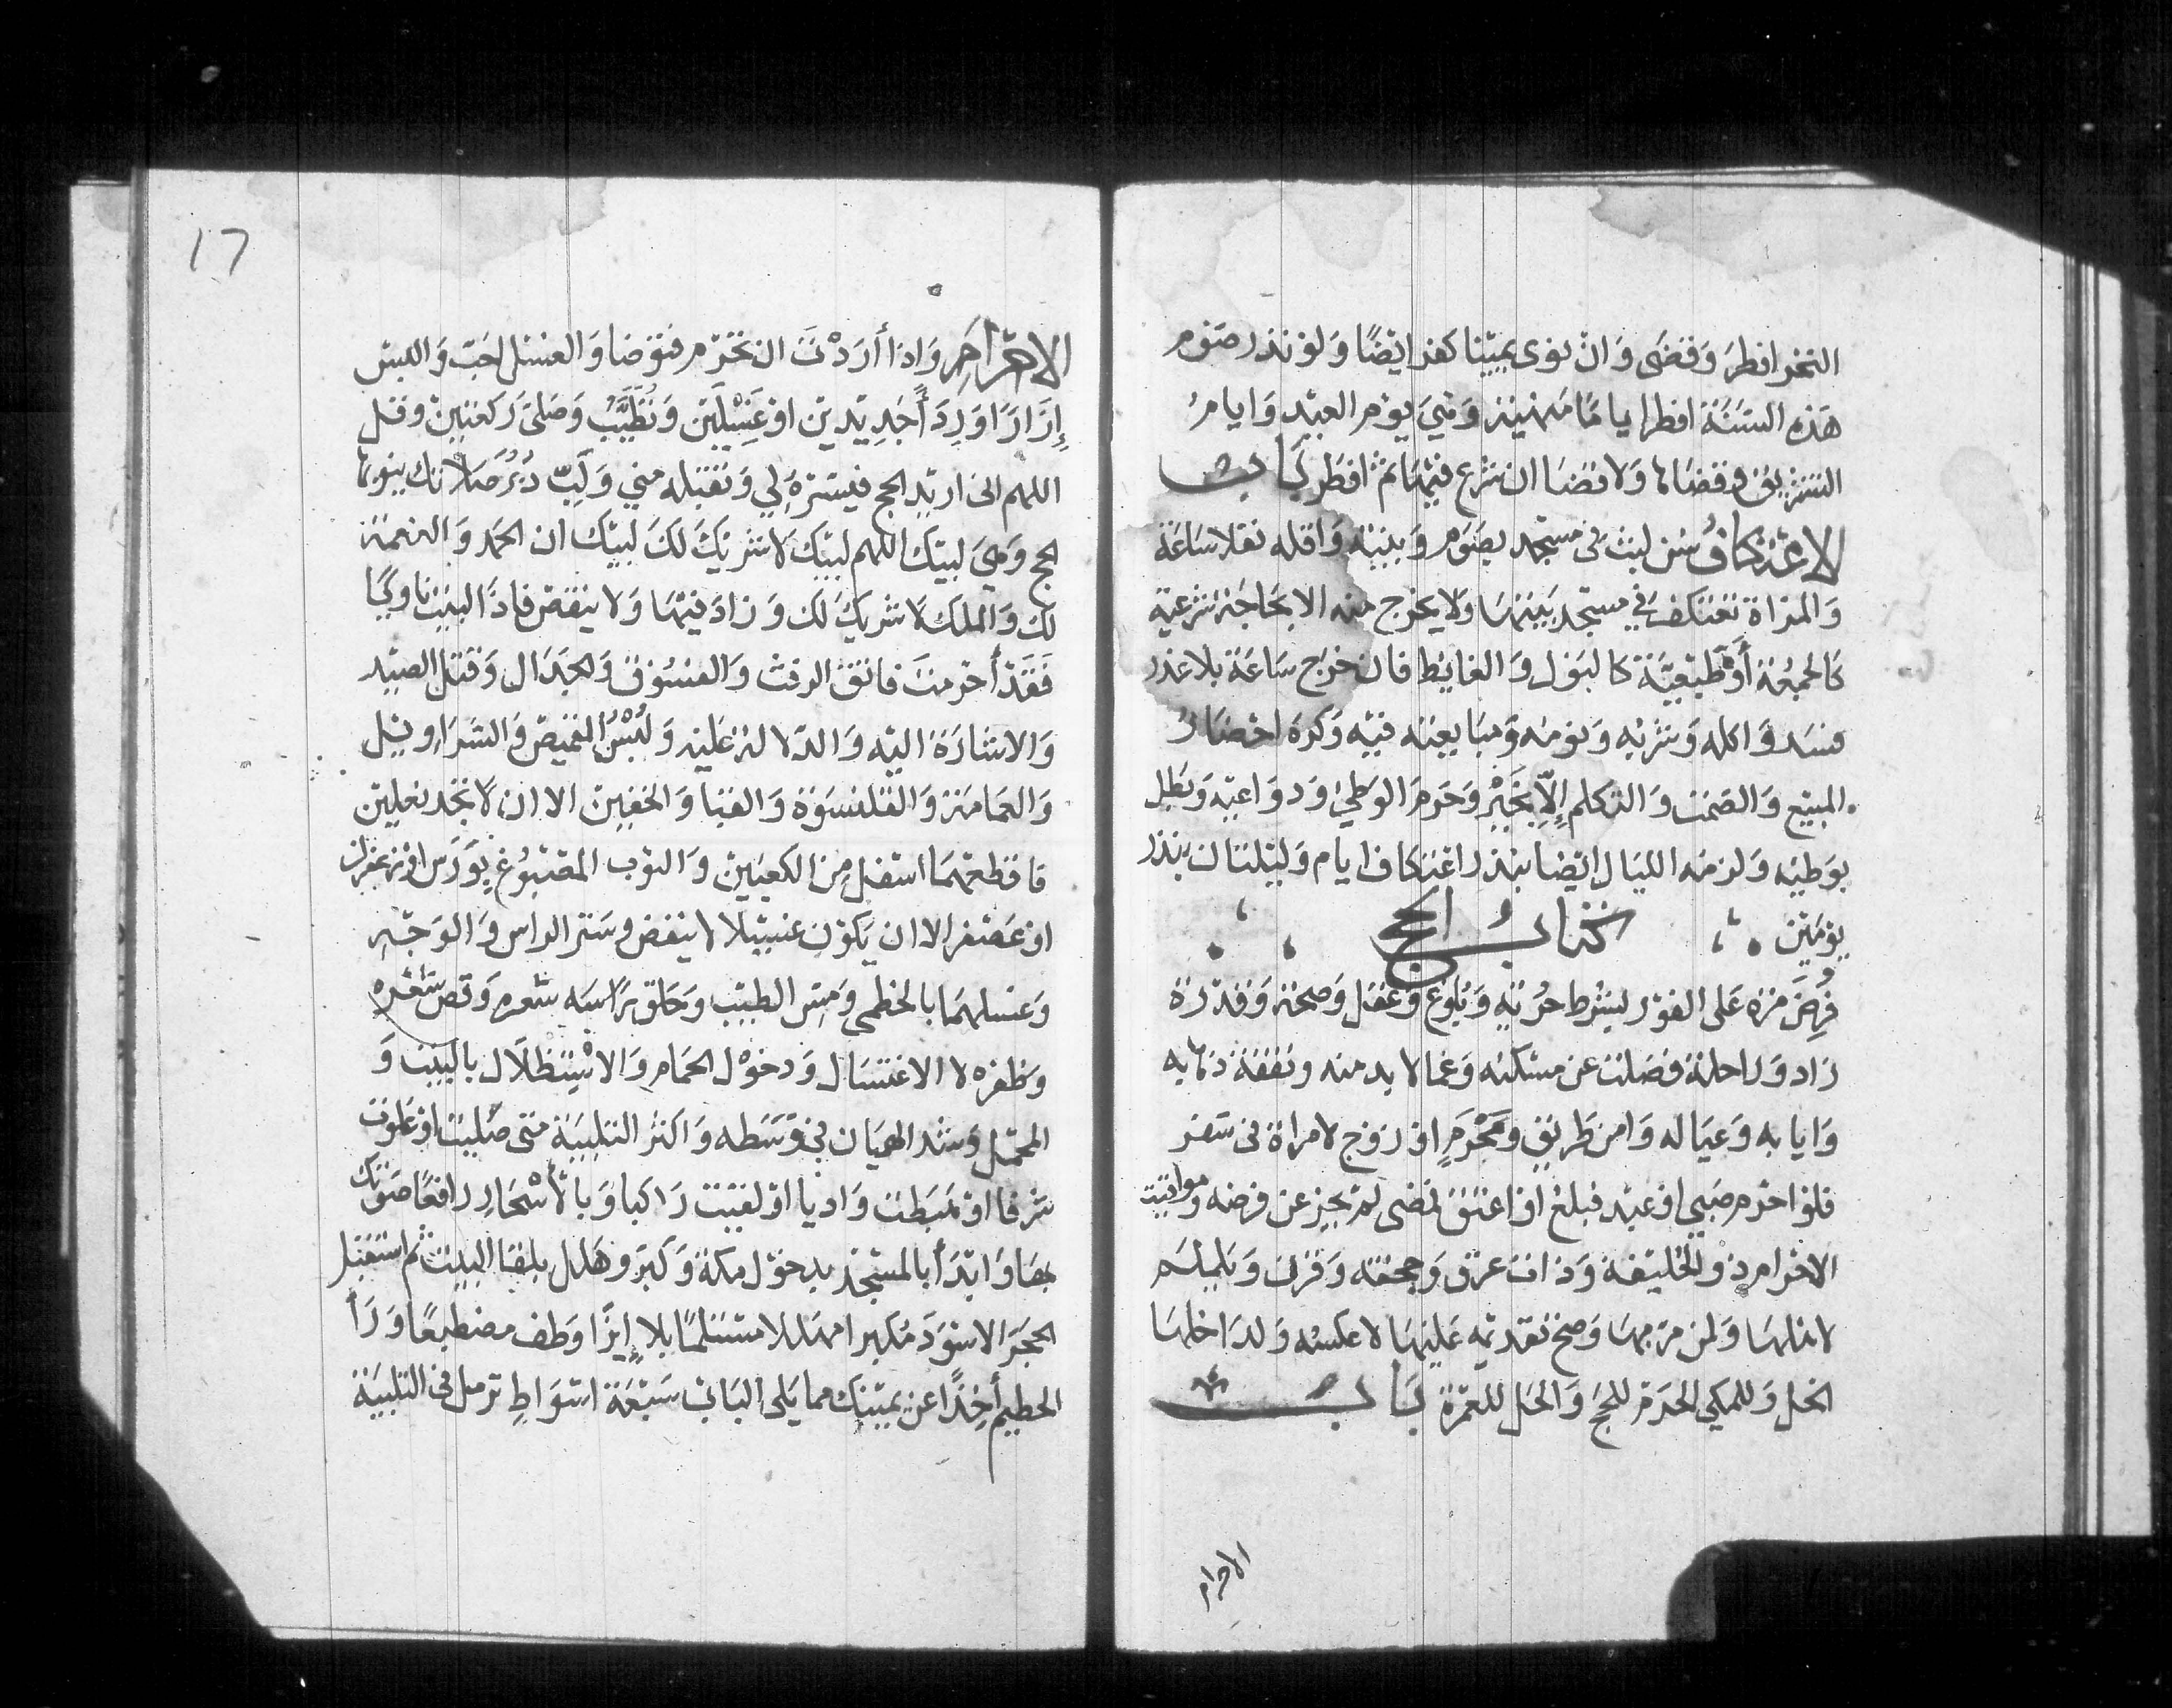 النحر افطر وَقضَى وَان نوى يميْنا كفر ايضًا وَلو نذر صَوْم
هَذه السَنَة افطر اياما مَنهيَة وَهيَ يوْم العيْد وَايام
التشريق وقضاها وَلا قضَا ان شرع فيْهَا ثم افطر بَاب
الاعْتكافُ سُن لبث فى مسْجد بصَوْم وَبنيَة وَاقله نفلا سَاعَة
وَالمرْاة تعْتكف في مسْجد بَيتهَا وَلا يخرج منه الا بحَاجَة شرْعية
كالجمُعَة أوْ طَبيْعيَّة كالبَوْل وَالغايط فان خرَج سَاعَة بلا عذر
فسَد وَاكله وَشرْبه وَنوْمه وَمبَايعته فيْه وَكره احْضَار
المبيْع وَالصَمْت وَالتكلم إِلَّا بخَيْر وَحَرم الوَطئ وَدوَاعيْه وَبَطل
بوَطئه وَلزمَه الليَال ايْضا بنذر اعتكاف ايام وَليْلتان بنذر
يوْمَيْن كتابُ الحج
فُرِضَ مَرة عَلى الفوْر لبشرْط حرّيَّة وَبُلوغ وَعَقل وَصحَة وَقدْرَة
زاد وَرَاحلة فضَلت عن مسْكنه وَعمالا بد منه وَنفقة ذهابه
وَايابه وَعيَاله وَامن طَريْق وَمَحْرَمٍ اوْ زوْج لامراة في سَفر
فلوْ احْرم صَبي اوْ عبْد فبلغ اوْ اعْتق فمضى لم يجز عن فرضه وَموَاقيت
الاحْرام ذو الحُليْفة وَذات عرْق وَجحفة وَقرن وَيلملم
لاهلهَا وَلمن مَر بهَا وَصح تقديمه عَليْهَا لا عكسُه وَلدَاخلهَا
الحل وَللمكي الحرَم للحج وَالحل للعمْرة بَاب
الاحرام
17
الاحْرَامِ وَاذا أرَدْتَ ان تحْرم فتوَضا وَالغسْل احَب وَالبس
إِزَارًا وَرِدَأً جَدِيْدَيْن اوْ غَسِيْلَيْن وَتُطَيَّبُ وَصَلى رَكعتيْن وقل
اللهم انى ارْيد الحج فيَسّرْهُ لِي وَتقَبّله مني وَلَبّ دُبُر صَلاتك ينوبها
الحج وَهيَ لبيْكَ اللهم لبيْكَ لَا شَريْكَ لَكَ لبيْك ان الحمد وَالنعمَة
لَك وَالملك لَا شريْك لَك وَزَاد فيْهَا وَلا ينْقص فاذا لبيْت ناويًا
فَقَدْ أحْرمتَ فاتق الرفث وَالفسُوق وَالجدَال وَقتل الصيْد
وَالاشارَة اليْه وَالدّلالة عَليْه وَلُبْسُ القميْص وَالسَرَاويْل
وَالعمَامَة وَالقلنسُوَة وَالقبَا وَالخفيْن الا ان لا تجد نعليْن
فاقطعهمَا اسْفل مِن الكعبَيْن وَالثوْب المصْبُوغ بوَرس اوْ زعْفران
اوْ عصْفر الا ان يَكوْن غسِيْلا لا ينفض وسَتر الراس وَالوَجْه
وَغسْلهمَا بالخطمي وَمس الطيْب وَحَلق رَاسه شعره وَقص شعْره
وَظفره لا الاغتسَال وَدخوْل الحمَام وَالاسْتِظلَال بالبيْت وَ
المحمل وَشد الهميَان في وَسَطه وَاكثر التلبيَة متى صَليْت اوْ علوْت
شرفا اوْ هَبَطت وَاديا اوْ لقيْت رَاكبا وَبالْأَسْحَارِ رافعًا صَوْتك
بهَا وَابدَأ بالمسْجد بدخوْل مكة وَكبّر وهَلل بلقا البيْت ثم اسْتقبل
الحَجَر الاسْوَد مُكبرا مهلّلا مسْتلمًا بلا إِيْذا وَطف مضطبعًا وَرَأ
الحطيْم أخِذًا عن يميْنك مما يَلى البَاب سَبْعَة اشْوَاطٍ ترْمل فى التلبيَة